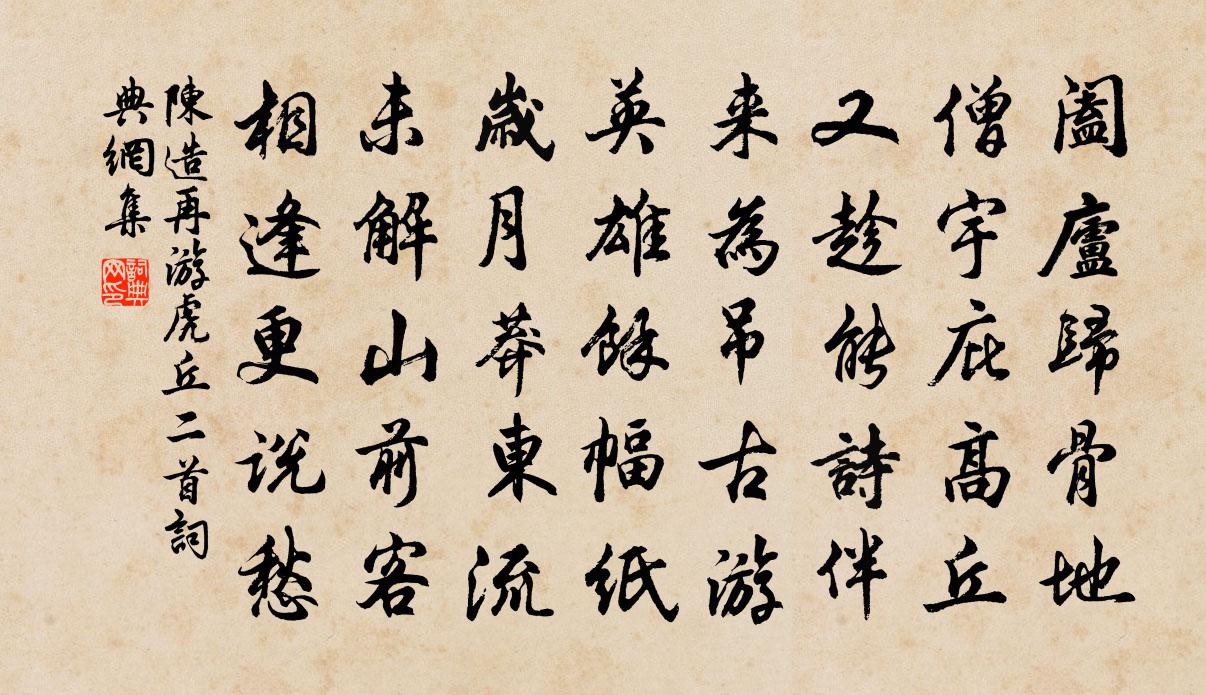 闔廬歸骨地
僧宇庇高丘
又趁能詩伴
来為吊古游
英雄餘幅紙
歲月莽東流
未解山前客
相逢更説愁
陳造再游虎丘二首詞
典網集
詞典
网印